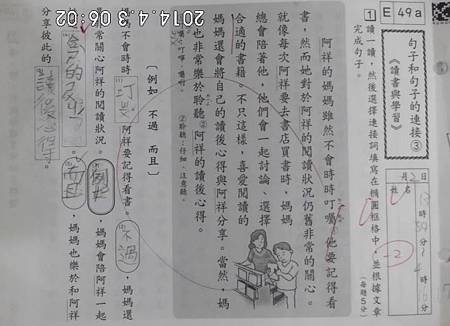 E 49a
句子和句子的連接③
《讀書與學習》
月 日
姓名
-2
1 讀一讀,然後選擇連接詞填寫在橢圓框格中,並根據文章
完成句子。
(每題5分)
阿祥的媽媽雖然不會時時叮囑①他要記得看
書,然而她對於阿祥的閱讀狀況仍舊非常的關心。
就像每次阿祥要去書店買書時,媽媽
總會陪著他,他們會一起討論、選擇
合適的書籍。不只這樣,喜愛閱讀的
媽媽還會將自己的讀後心得與阿祥分享。當然,媽
媽也非常樂於聆聽②阿祥的讀後心得。
②聆聽:仔細、注意聽。
〔例如 不過 而且〕
媽媽不會時時 阿祥要記得看書。不過,媽媽還
是非常關心阿祥的閱讀狀況。例如,媽媽會陪阿祥一起
而且,媽媽也樂於和阿祥
分享彼此的讀後心得。
2014. 4. 3 06:02